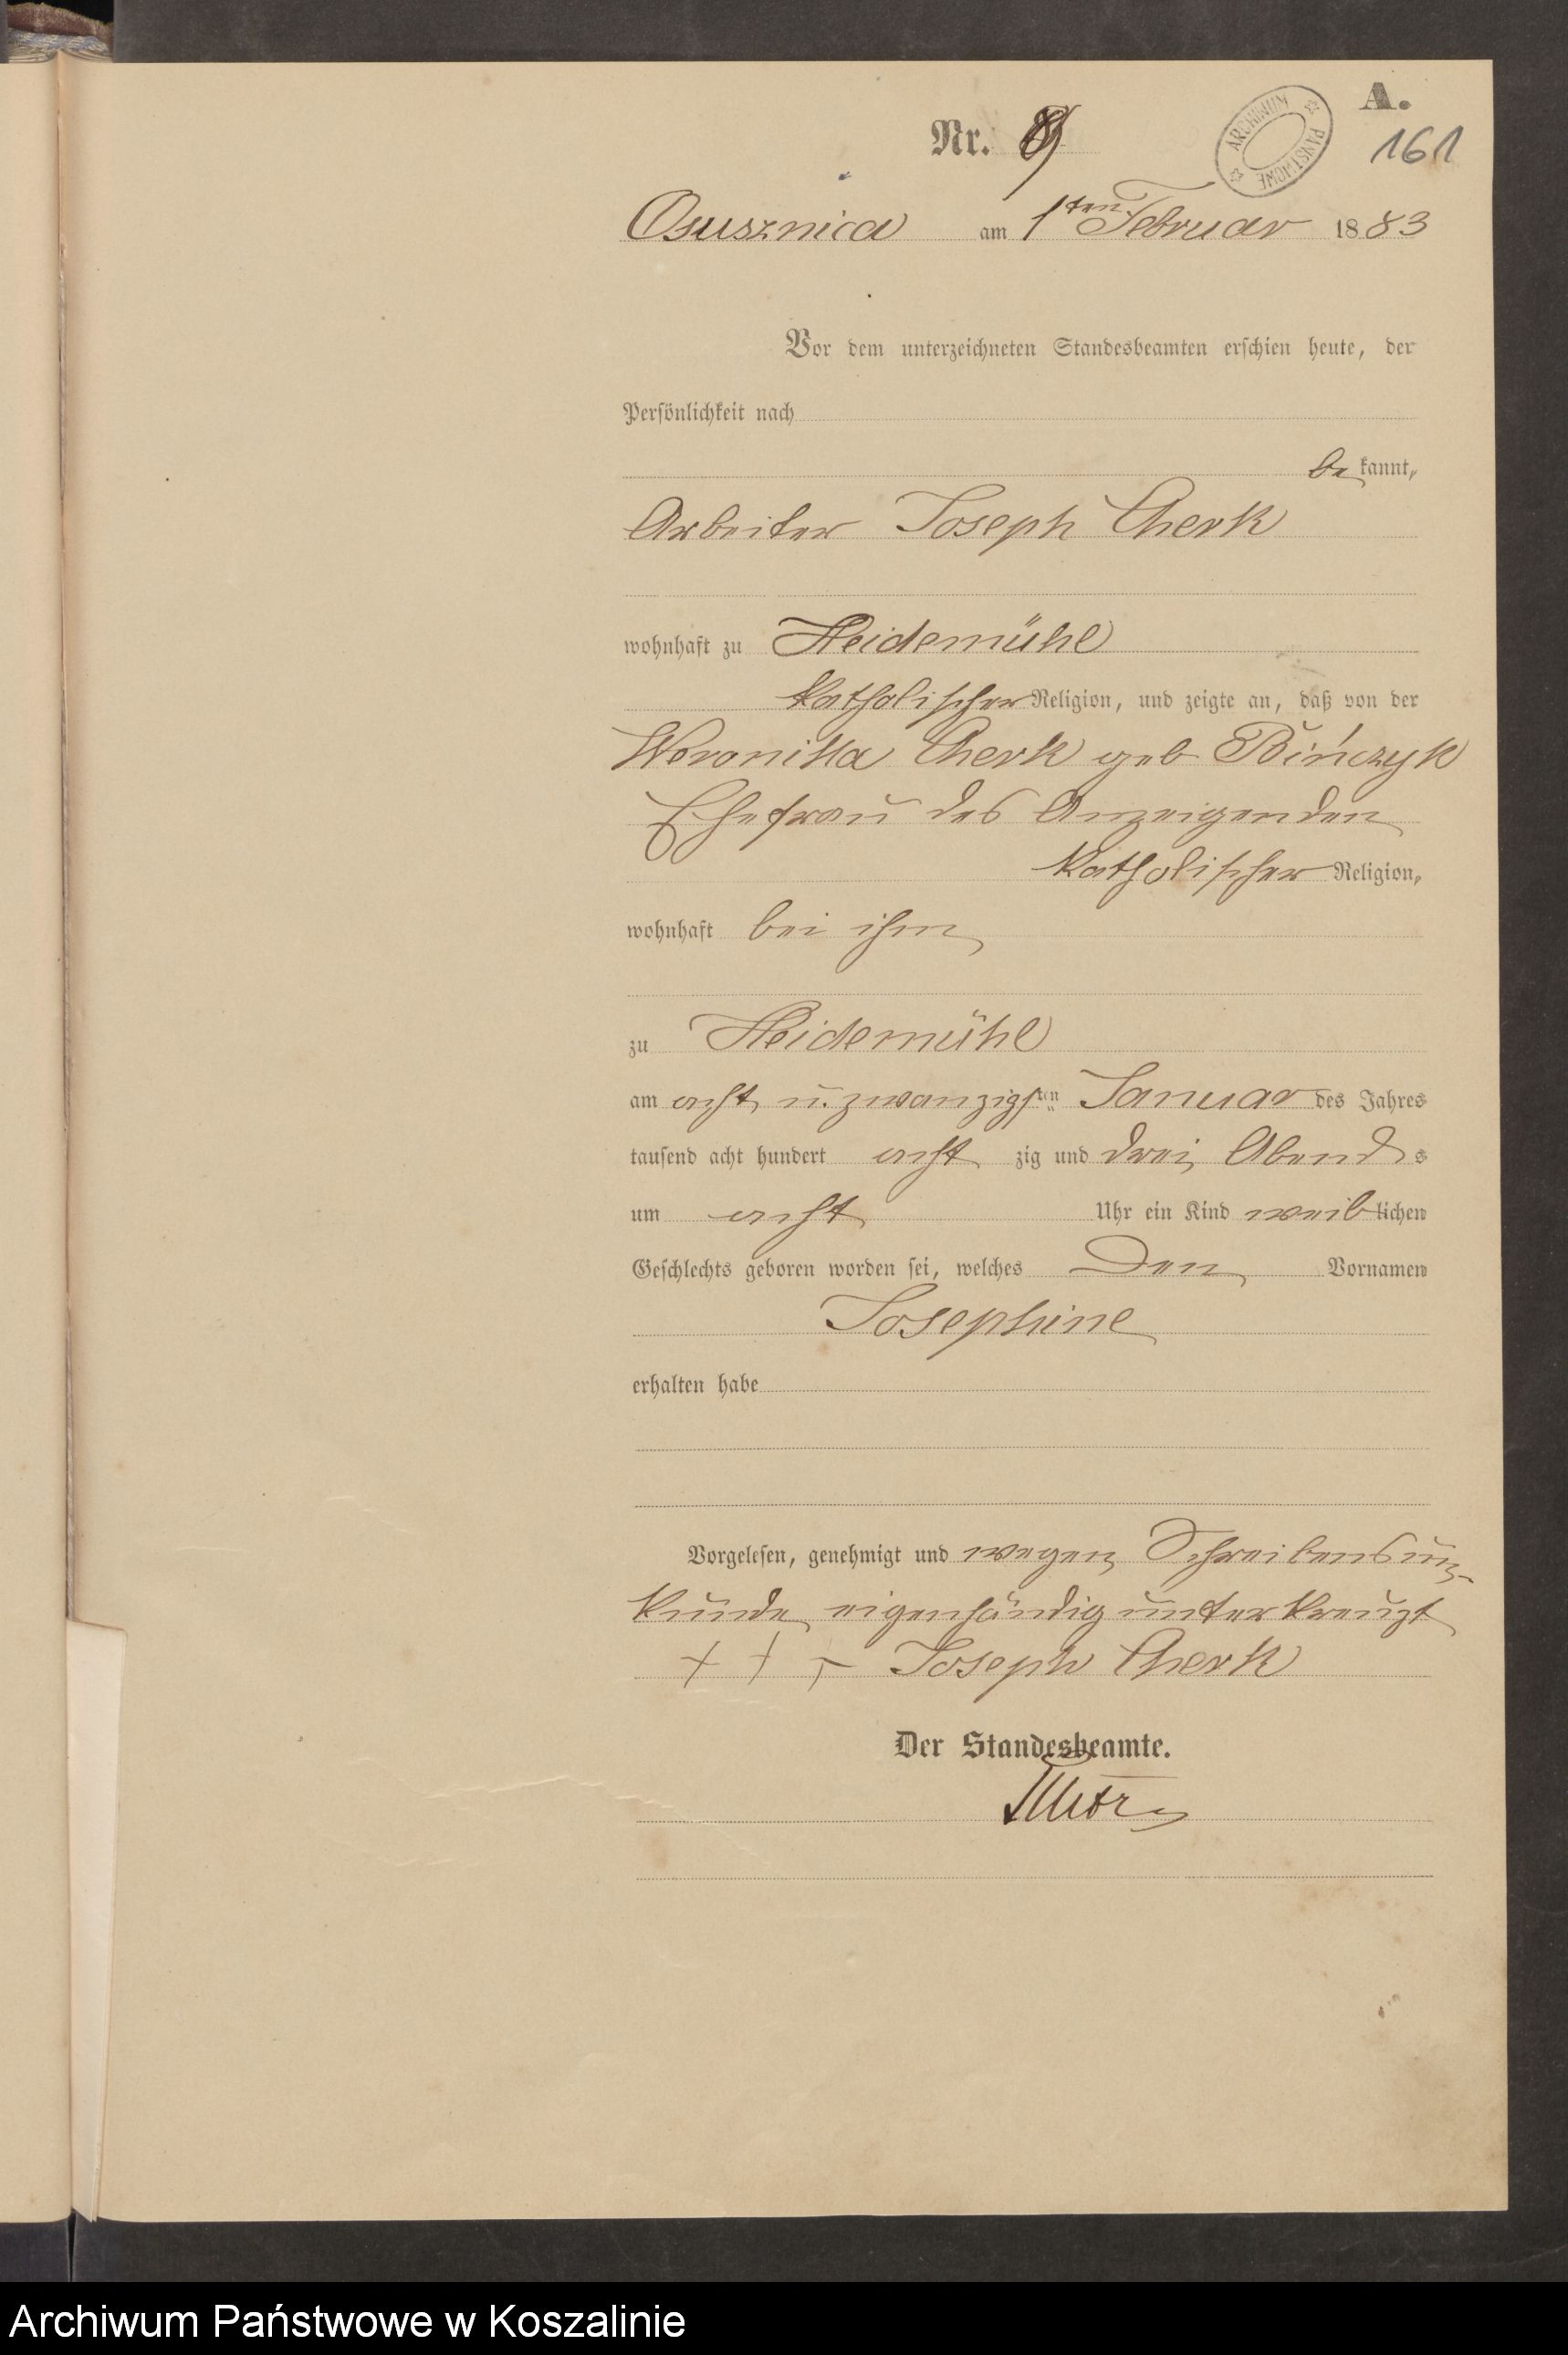 A.
Nr.
ARCHIWUM PAŃSTWOWE
161
Osusznica am 1ten Februar 1883
Vor dem unterzeichneten Standesbeamten erschien heute, der
Persönlichkeit nach
be kannt,
Arbeiter Joseph Cherk
wohnhaft zu Heidemühl
katholischer Religion, und zeigte an, daß von der
Weronika Cherk geb Bińczyk
Ehefrau des Anzeigenden
katholischer Religion,
wohnhaft bei ihm
zu Heidemühl
am acht u. zwanzigsten Januar des Jahres
tausend acht hundert acht zig und drei Abends
um acht Uhr ein Kind weiblichen
Geschlechts geboren worden sei, welches den Vornamen
Josephine
erhalten habe
Vorgelesen, genehmigt und wegen Schreibensun-
kunde eigenhändig unterkreuzt
+ + + Joseph Cherk
Der Standesbeamte.
Archiwum Państwowe w Koszalinie